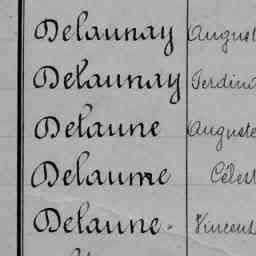 Delaunay August
Delaunay Ferdina
Delaune Auguste
Delaume Célest
Delaune. Vincent